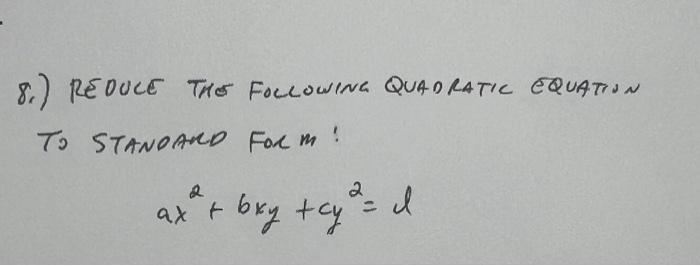 8.) REDUCE THE FOLLOWING QUADRATIC EQUATION
TO STANDARD FORM!
ax² + bxy + cy² = d